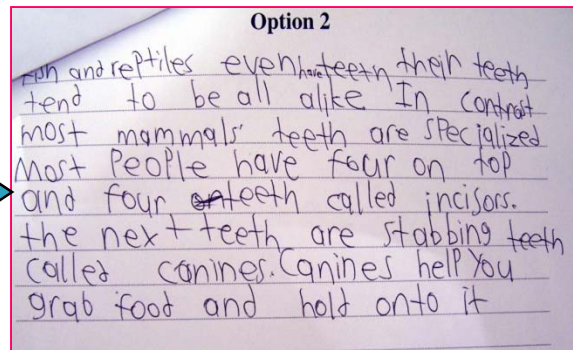 Option 2
Fish and reptiles even have teeth their teeth
tend to be all alike In contrast
most mammals' teeth are specialized
Most People have four on top
and four teeth called incisors.
the next teeth are stabbing teeth
called canines. Canines help You
grab food and hold onto it